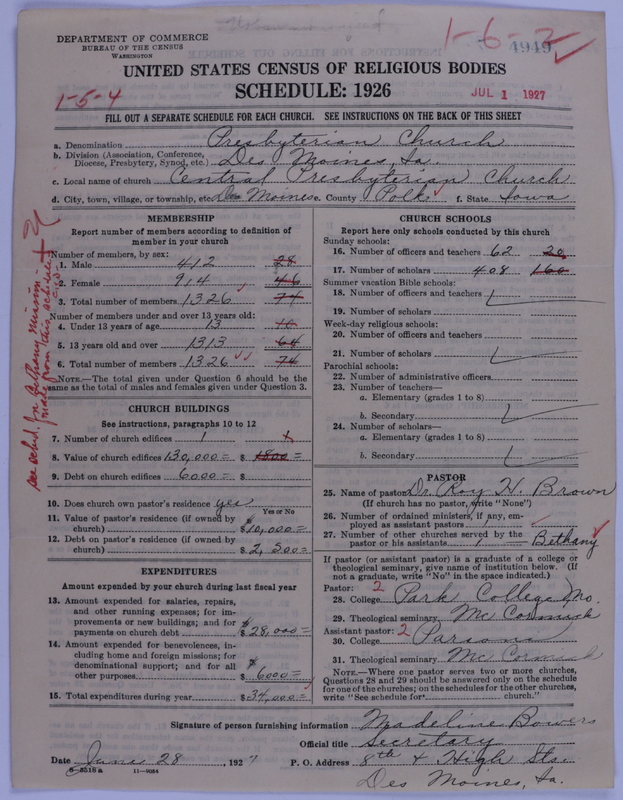 DEPARTMENT OF COMMERCE
BUREAU OF THE CENSUS
WASHINGTON
1-6-2
4949
UNITED STATES CENSUS OF RELIGIOUS BODIES
SCHEDULE: 1926
1-5-4
JUL 1 1927
FILL OUT A SEPARATE SCHEDULE FOR EACH CHURCH. SEE INSTRUCTIONS ON THE BACK OF THIS SHEET
a. Denomination Presbyterian Church
b. Division (Association, Conference, Diocese, Presbytery, Synod, etc.) Des Moines, Ia.
c. Local name of church Central Presbyterian Church
d. City, town, village, or township, etc. Des Moines e. County Polk f. State Iowa
MEMBERSHIP
Report number of members according to definition of
member in your church
Number of members, by sex:
1. Male 412 28
2. Female 914 46
3. Total number of members 1326 74
Number of members under and over 13 years old:
4. Under 13 years of age 13 10
5. 13 years old and over 1313 64
6. Total number of members 1326 74
NOTE.—The total given under Question 6 should be
same as the total of males and females given under Question 3.
see sched. for Bethany mission
made from this schedule
CHURCH BUILDINGS
See instructions, paragraphs 10 to 12
7. Number of church edifices 1 1
8. Value of church edifices $ 130,000= $ 1800=
9. Debt on church edifices 6000= $
10. Does church own pastor's residence yes
Yes or No
11. Value of pastor's residence (if owned by
church) $10,000=
12. Debt on pastor's residence (if owned by
church) $2,500=
EXPENDITURES
Amount expended by your church during last fiscal year
13. Amount expended for salaries, repairs,
and other running expenses; for im-
provements or new buildings; and for
payments on church debt $28,000=
14. Amount expended for benevolences, in-
cluding home and foreign missions; for
denominational support; and for all
other purposes $6000=
15. Total expenditures during year $34,000=
CHURCH SCHOOLS
Report here only schools conducted by this church
Sunday schools:
16. Number of officers and teachers 62 20
17. Number of scholars 408 160
Summer vacation Bible schools:
18. Number of officers and teachers
19. Number of scholars
Week-day religious schools:
20. Number of officers and teachers
21. Number of scholars
Parochial schools:
22. Number of administrative officers
23. Number of teachers—
a. Elementary (grades 1 to 8)
b. Secondary
24. Number of scholars—
a. Elementary (grades 1 to 8)
b. Secondary
PASTOR
25. Name of pastor Dr. Roy H. Brown
(If church has no pastor, write "None")
26. Number of ordained ministers, if any, em-
ployed as assistant pastors 1
27. Number of other churches served by the
pastor or his assistants 1 Bethany
If pastor (or assistant pastor) is a graduate of a college or
theological seminary, give name of institution below. (If
not a graduate, write "No" in the space indicated.)
Pastor: 2
28. College Park College Mo.
29. Theological seminary McCormick
Assistant pastor: 2
30. College Parsons
31. Theological seminary McCormick
NOTE.—Where one pastor serves two or more churches,
Questions 28 and 29 should be answered only on the schedule
for one of the churches; on the schedules for the other churches,
write "See schedule for church."
Signature of person furnishing information Madeline Bowers
Official title Secretary
Date June 28, 1927 P. O. Address 8th & High Sts.
8-5518a 11-9054
Des Moines, Ia.